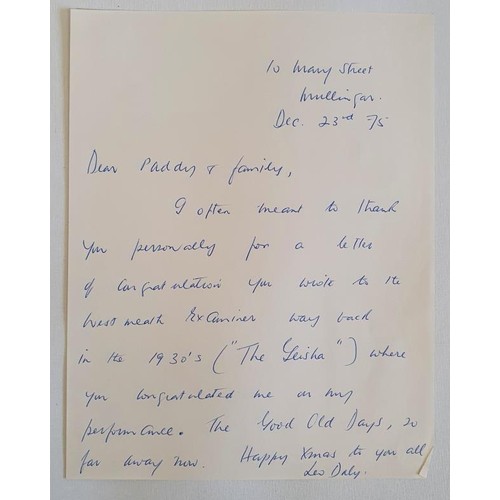 10 Mary Street
Mullingar.
Dec. 23rd 75
Dear Paddy & family,
I often meant to thank
you personally for a letter
of congratulation you wrote to the
Westmeath Examiner way back
in the 1930's ("The Geisha") where
you congratulated me on my
performance. The Good Old Days, so
far away now. Happy Xmas to you all
Leo Daly.